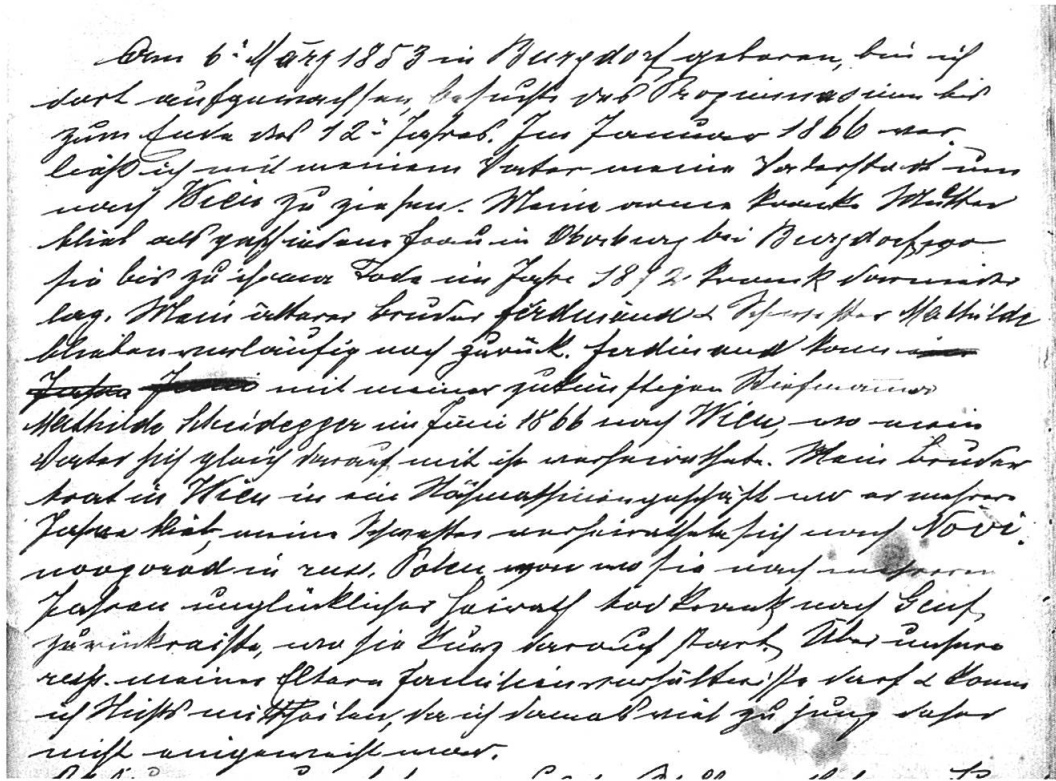 Am 6. März 1853 in Burgdorf geboren, bin ich
dort aufgewachsen, besuchte das Progimnasium bis
zum Ende des 12. Jahres. Im Januar 1866 ver
ließ ich mit meinem Vater meine Vaterstadt um
nach Wien zu ziehen. Meine arme kranke Mutter
blieb als geschiedene Frau in Oberburg bei Burgdorf, wo
sie bis zu ihrem Tode im Jahre 1892 krank darnieder
lag. Mein älterer Bruder Ferdinand & Schwester Mathilde
blieben vorläufig noch zurück. Ferdinand kam
mit meiner zukünftigen Stiefmama
Mathilde Scheidegger im Juni 1866 nach Wien, wo mein
Vater sich gleich darauf mit ihr verheirathete. Mein Bruder
trat in Wien in ein Nähmaschinengeschäft wo er mehrere
Jahre blieb, meine Schwester verheirathete sich nach Novi.
novgorod in russ. Polen von wo sie nach mehreren
Jahren unglücklicher Heirath tod krank nach Genf
zurückreiste, wo sie kurz darauf starb. Über unsere
resp. meiner Eltern Familienverhältnisse darf & kann
ich Nichts mittheilen, da ich damals viel zu jung daher
nicht eingeweiht war.